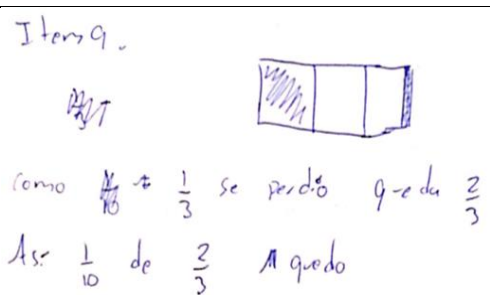 Item 9.
como 1/3 se perdió queda 2/3
Asi 1/10 de 2/3 quedo